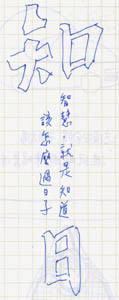 知
智慧，就是知道
該怎麼過日子
日